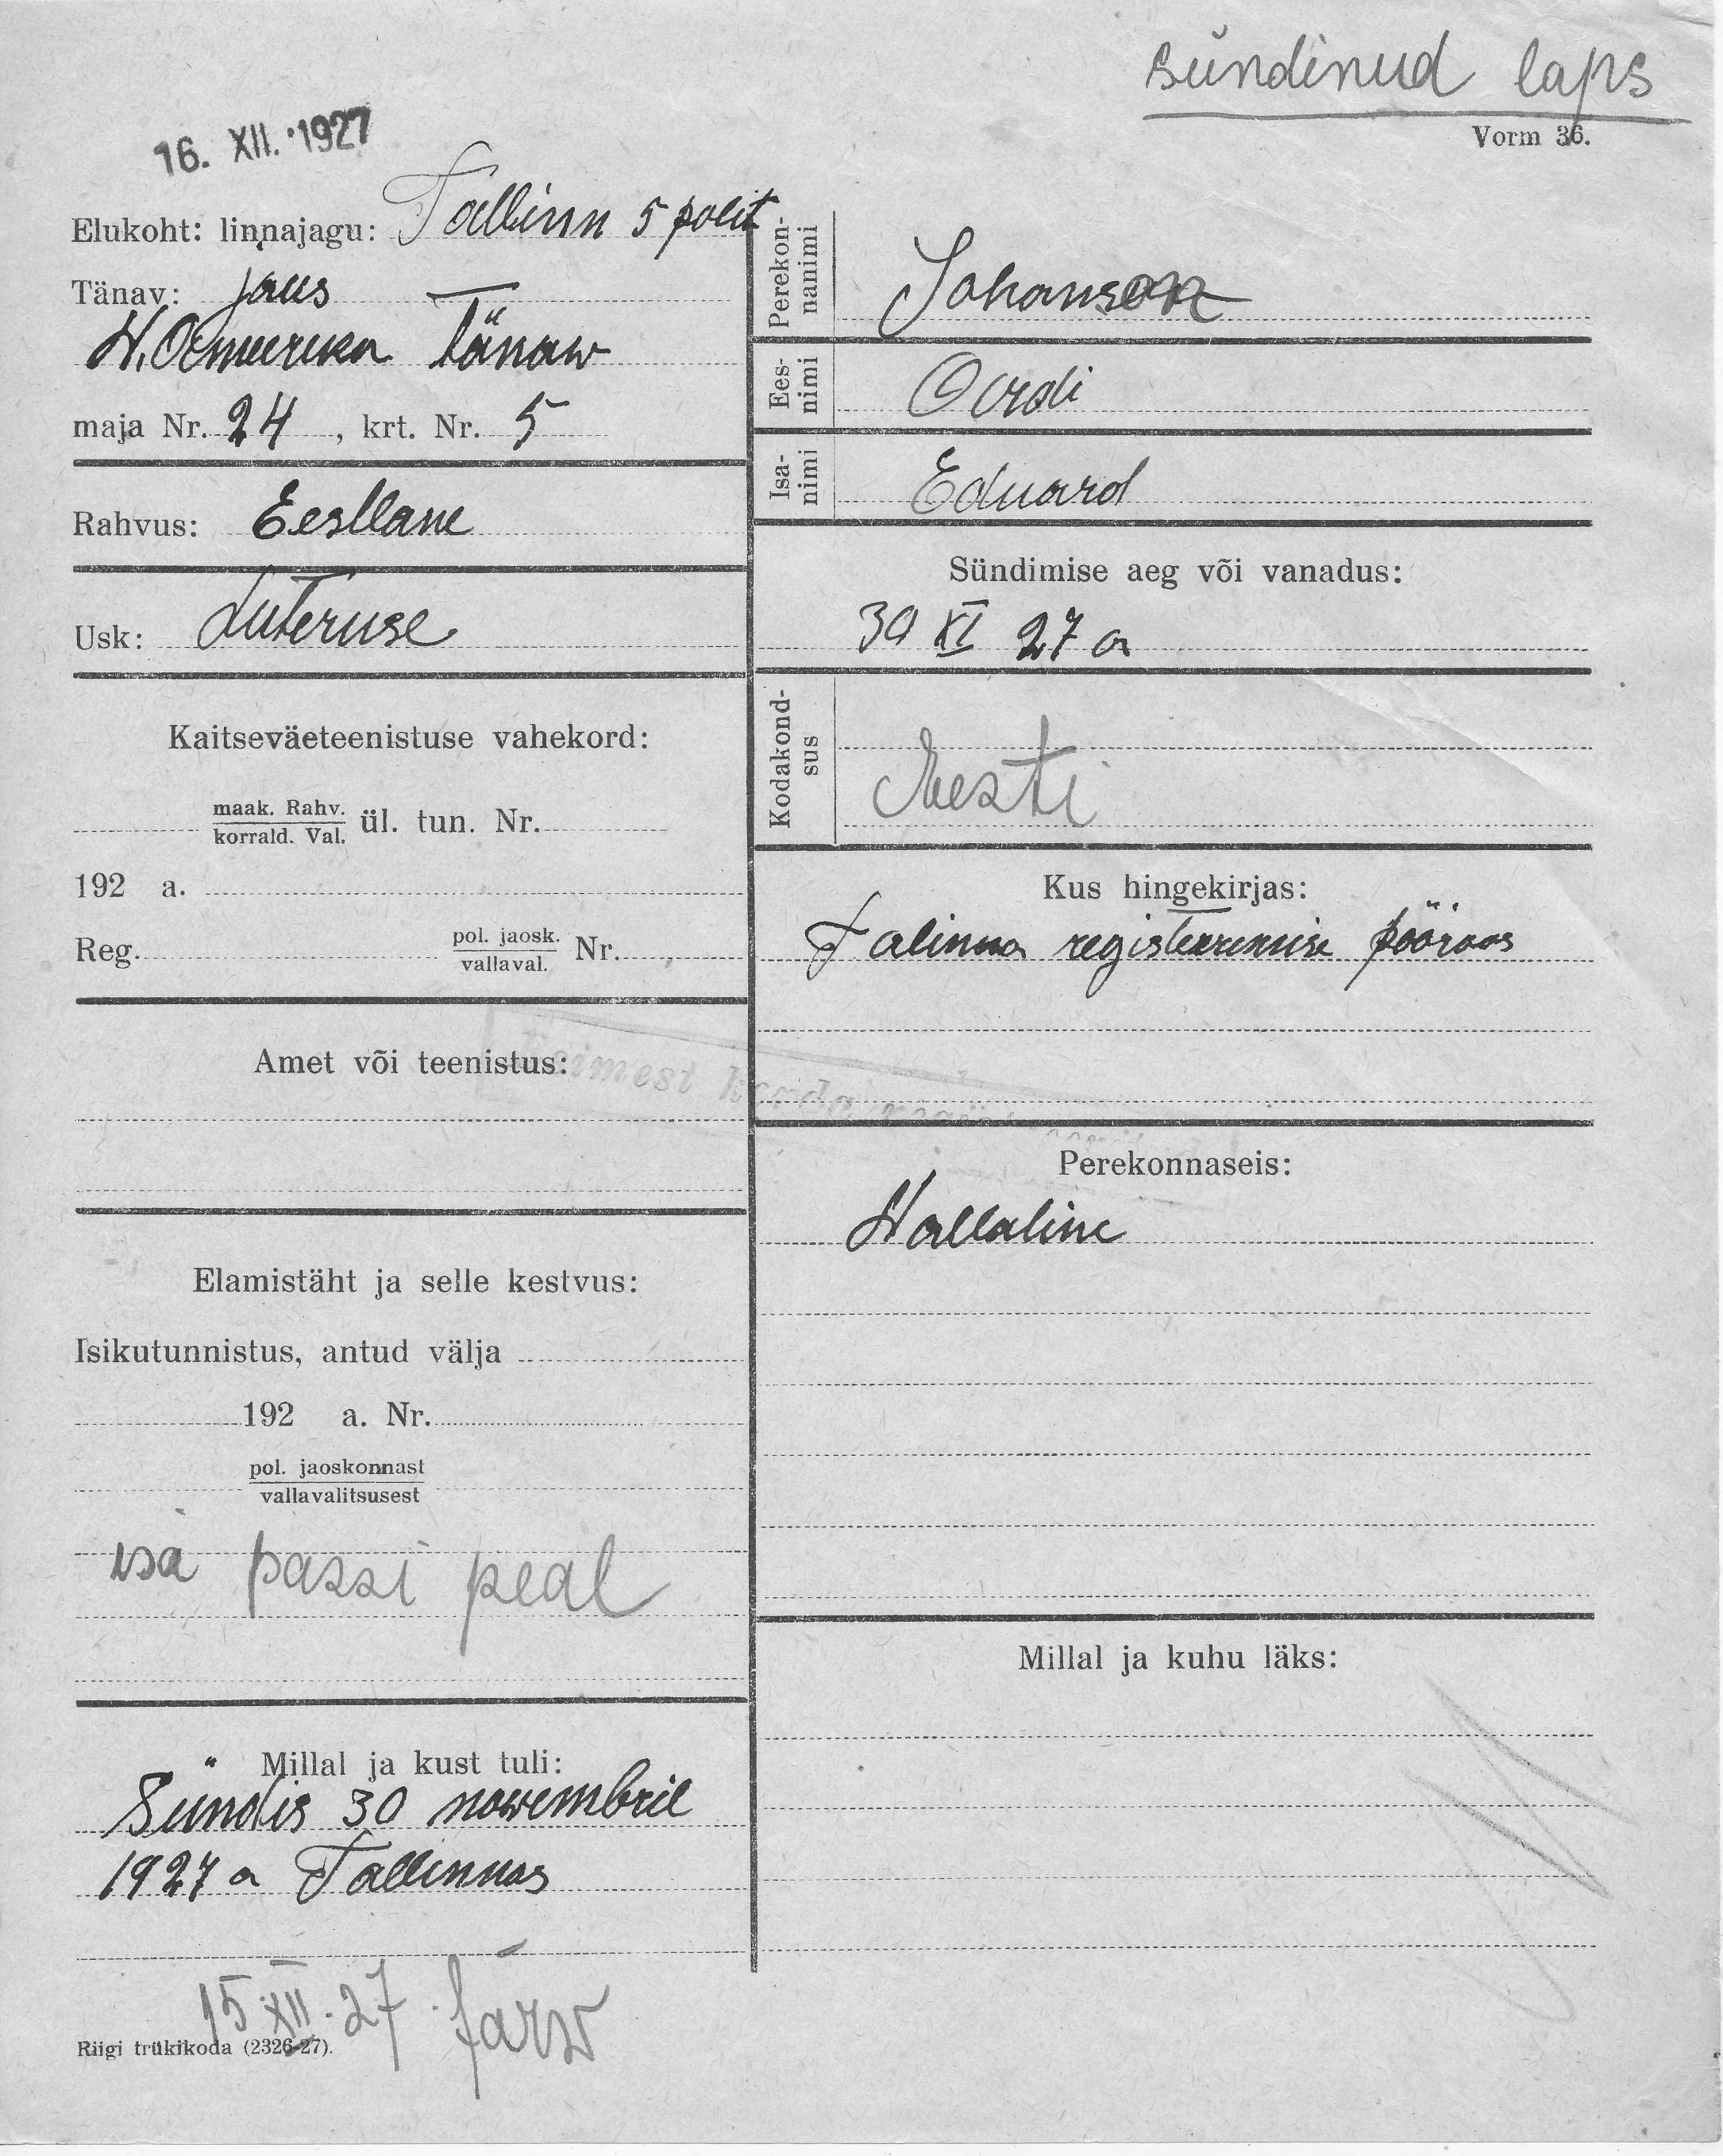 sündinud laps
Vorm 36.
16. XII. 1927
Elukoht: linnajagu: Tallinn 5 polit
jaus
Tänav:
W. Ameerika tänaw
maja Nr. 24, krt. Nr. 5
Rahvus: Eestlane
Usk: Luteruse
Kaitseväeteenistuse vahekord:
maak. Rahv.
korrald. Val. ül. tun. Nr.
192 a.
Reg. pol. jaosk.
vallaval. Nr.
Amet või teenistus:
Elamistäht ja selle kestvus:
Isikutunnistus, antud välja
192 a. Nr.
pol. jaoskonnast
vallavalitsusest
isa passi peal
Millal ja kust tuli:
Sündis 30 nowembril
1927 a Tallinnas
15 XII. 27. Järw
Riigi trükikoda (2326-27).
Perekonnanimi Johanson
Eesnimi Ardi
Isanimi Eduard
Sündimise aeg või vanadus:
30 XI 27 a
Kodakondsus Eesti
Kus hingekirjas:
Talinna registeeremise pööroos
Perekonnaseis:
Wallaline
Millal ja kuhu läks: